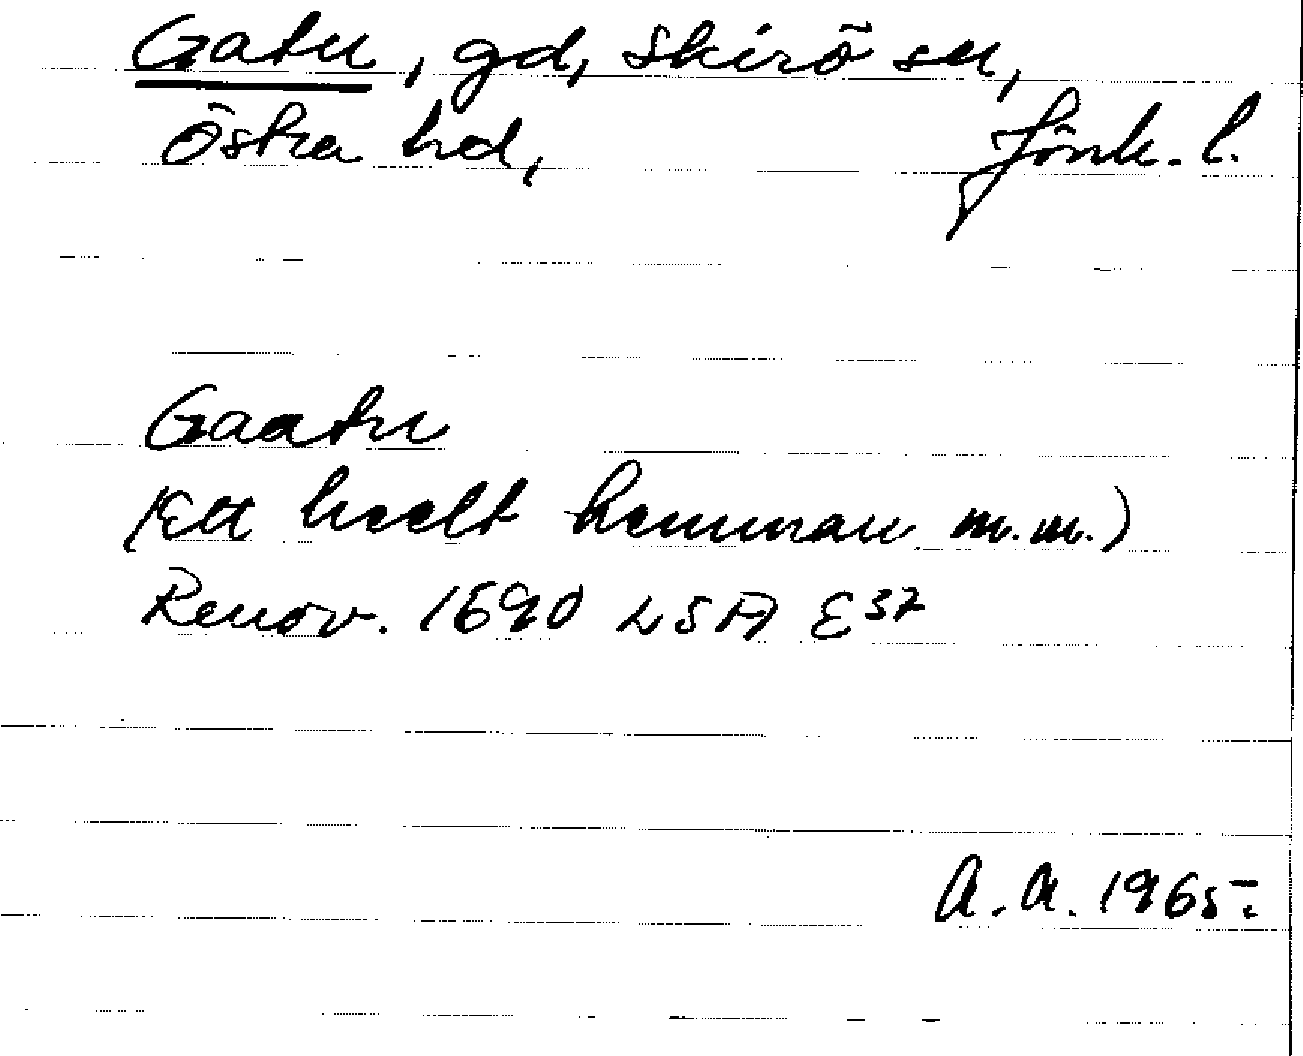 Gatu, gd, Skirö sn,
Östra hd, Jönk. l.
Gaatu
(Ett heelt hemman m.m.)
Renov. 1690 LSA E37
A. A. 1965.